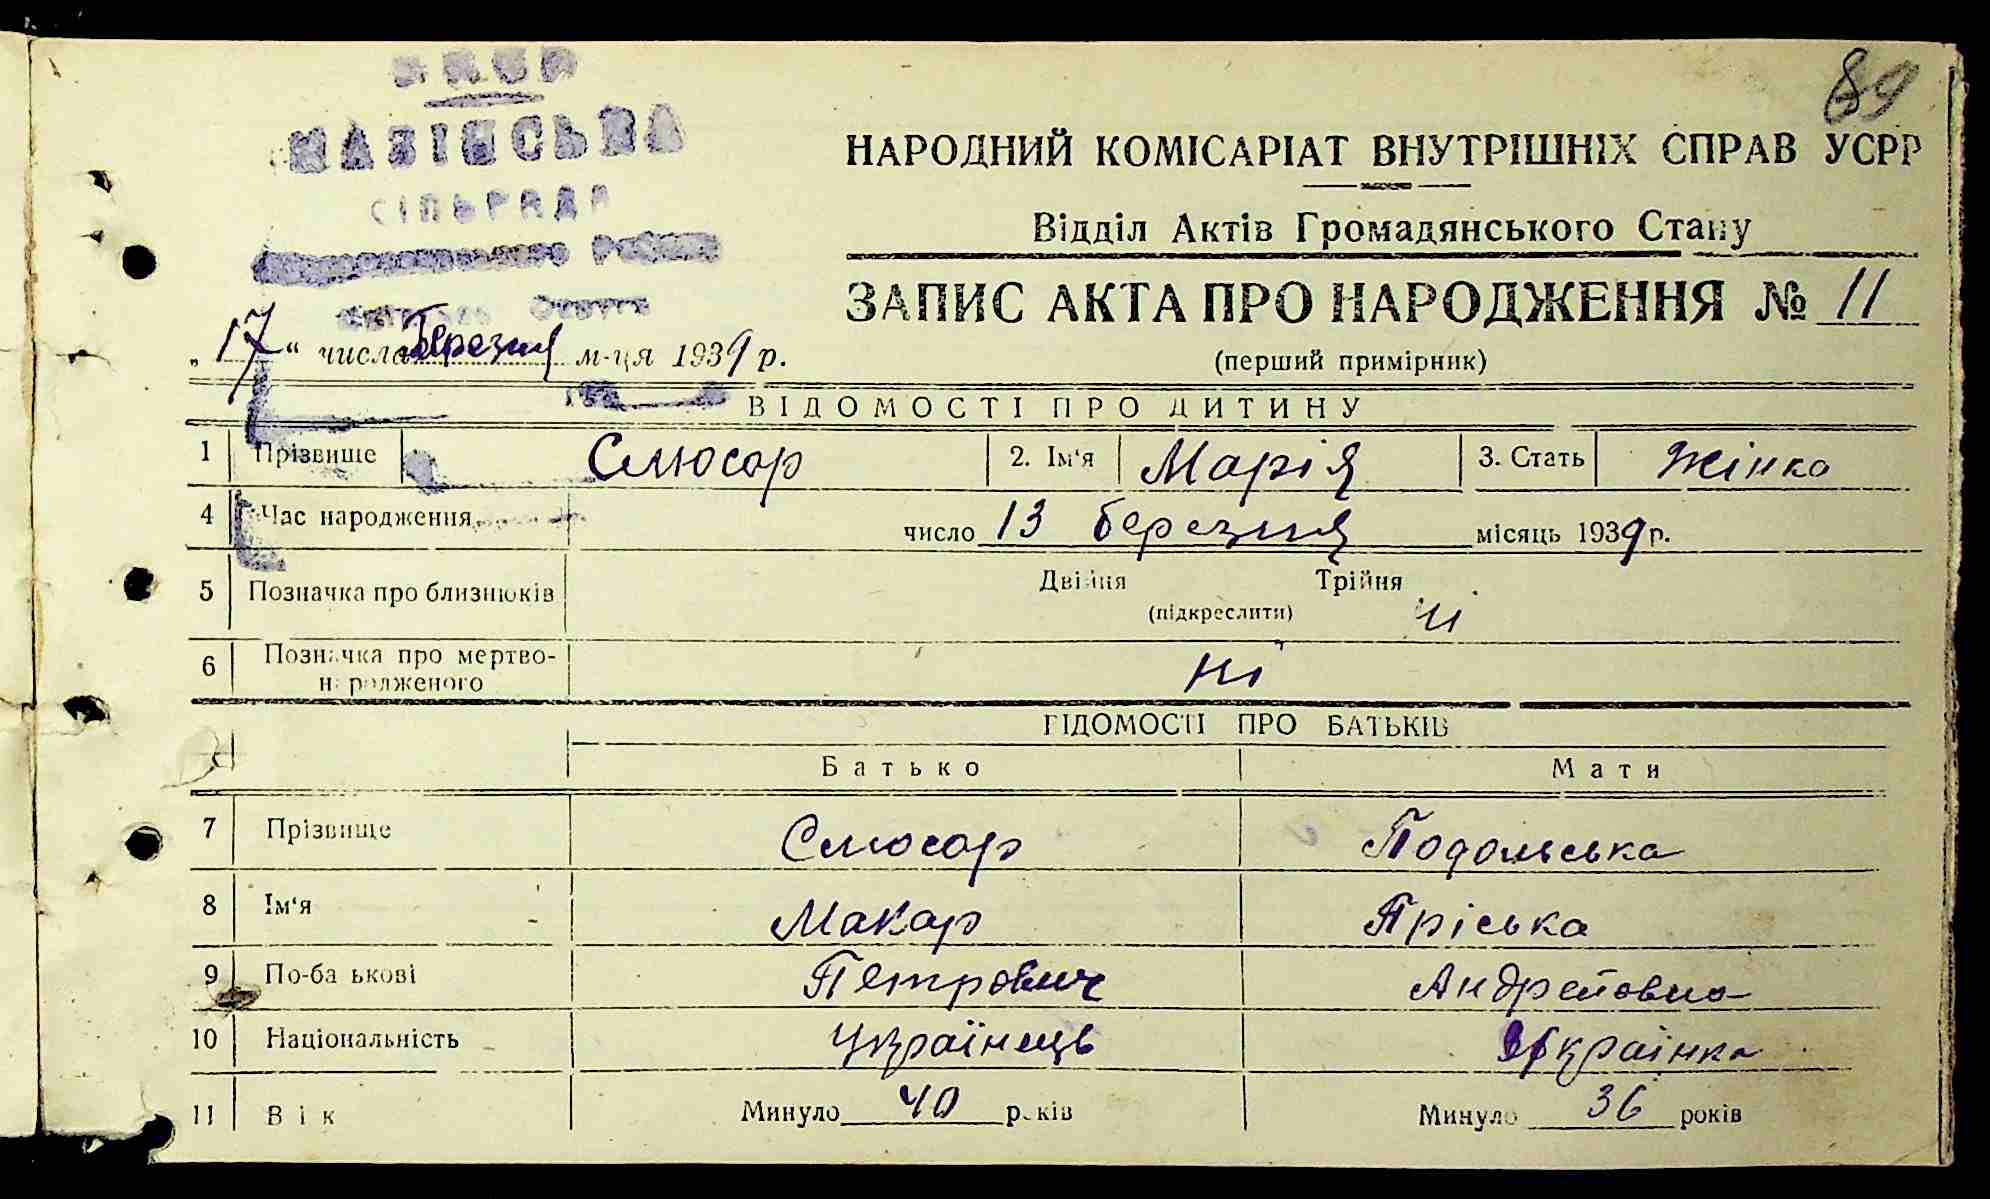 89
УРСР
МАЗІНСЬКА
СІЛЬРАДА
НАРОДНИЙ КОМІСАРІАТ ВНУТРІШНІХ СПРАВ УСРР
Відділ Актів Громадянського Стану
ЗАПИС АКТА ПРО НАРОДЖЕННЯ № 11
„17“ числа Березня м-ця 1939 р.
(перший примірник)
ВІДОМОСТІ ПРО ДИТИНУ
1 Прізвище Слюсар 2. Ім'я Марія 3. Стать Жінка
4 Час народження число 13 березня місяць 1939 р.
5 Позначка про близнюків Двійня Трійня
(підкреслити) ні
6 Позначка про мертво-
народженого ні
ВІДОМОСТІ ПРО БАТЬКІВ
Батько Мати
7 Прізвище Слюсар Подольська
8 Ім'я Макар Пріська
9 По-батькові Петрович Андреївна
10 Національність Українець Українка
11 Вік Минуло 40 років Минуло 36 років